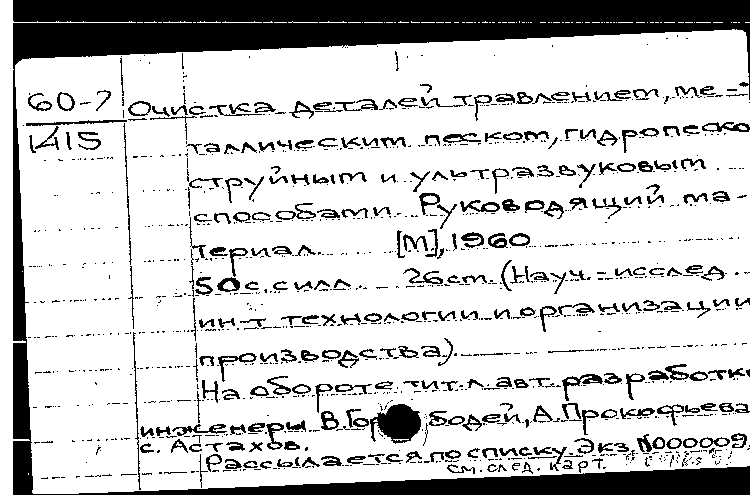 60-7 Очистка деталей травлением, ме-
1415 таллическим песком, гидропеско
струйным и ультразвуковым
способами. Руководящий ма-
териал. [М], 1960
50 с. с илл. 26 см. (Науч.-исслед.
ин-т технологии и организации
производства).
На обороте тит. л. авт. разработки
инженеры В. бодей, А. Прокофьева
с. Астахов.
Рассылается по списку. Экз. №000009
см. след. карт.